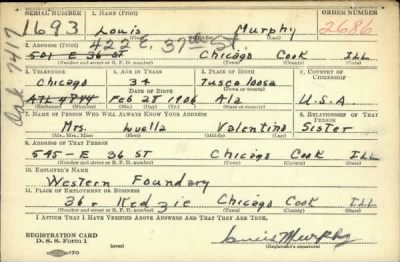 SERIAL NUMBER 1. NAME (Print) ORDER NUMBER
1693 Louis Murphy 2686
(First) (Middle) (Last)
422 E. 37th St.
2. ADDRESS (Print)
501 E 36 ST Chicago Cook ILL
(Number and street or R. F. D. number) (Town) (County) (State)
3. TELEPHONE 4. AGE IN YEARS 5. PLACE OF BIRTH 6. COUNTRY OF CITIZENSHIP
Chicago 34 Tuscaloosa
DATE OF BIRTH (Town or county)
Feb 28 1906 Ala U.S.A
(Exchange) (Number) (Mo.) (Day) (Yr.) (State or country)
7. NAME OF PERSON WHO WILL ALWAYS KNOW YOUR ADDRESS 8. RELATIONSHIP OF THAT PERSON
Mrs. Luella Valentino Sister
(Mr., Mrs., Miss) (First) (Middle) (Last)
9. ADDRESS OF THAT PERSON
545-E 36 ST Chicago Cook ILL
(Number and street or R. F. D. number) (Town) (County) (State)
10. EMPLOYER'S NAME
Western Foundary
11. PLACE OF EMPLOYMENT OR BUSINESS
36 + Kedzie Chicago Cook ILL
(Number and street or R. F. D. number) (Town) (County) (State)
I AFFIRM THAT I HAVE VERIFIED ABOVE ANSWERS AND THAT THEY ARE TRUE.
REGISTRATION CARD
D. S. S. Form 1 (over) Louis Murphy
(Registrant's signature)
Oak 7417